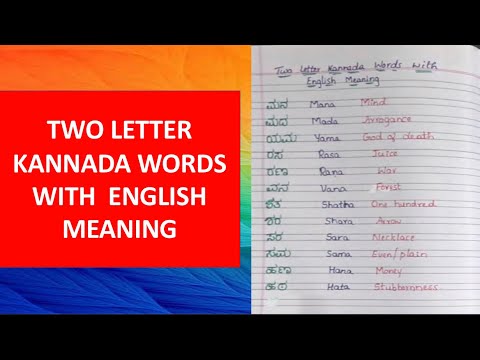 TWO LETTER
KANNADA WORDS
WITH ENGLISH
MEANING
Two Letter Kannada Words with
English Meaning
ಮನ Mana Mind
ಮದ Mada Arrogance
ಯಮ Yama God of death
ರಸ Rasa Juice
ರಣ Rana War
ವನ Vana Forest
ಶತ Shatha One hundred
ಶರ Shara Arrow
ಸರ Sara Necklace
ಸಮ Sama Even/plain
ಹಣ Hana Money
ಹಠ Hata Stubbornness